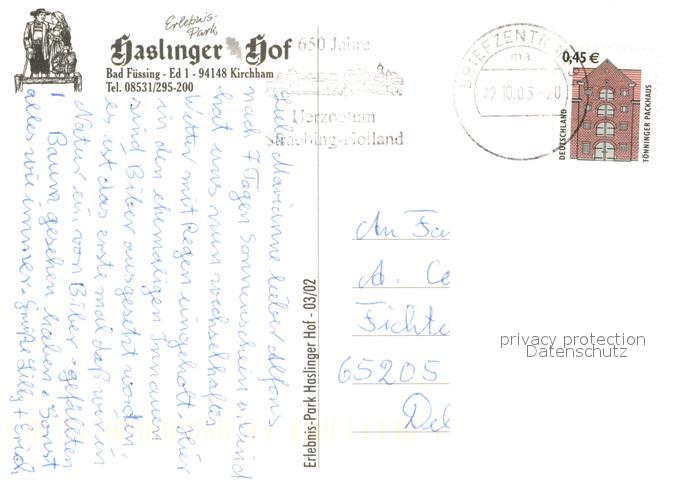 Erlebnis-
Park
Haslinger Hof
Bad Füssing - Ed 1 - 94148 Kirchham
Tel. 08531/295-200
650 Jahre
Herzogtum
Straubing-Holland
BRIEFZENTRUM
ma
22.10.03 - 20
0,45 €
DEUTSCHLAND
TÖNNINGER PACKHAUS
Liebe Marianne lieber Alfons
nach 7 Tagen Sonnenschein u. Wind
hat uns nun wechselhaftes
Wetter mit Regen eingeholt. Hier
in den ehemaligen Innauen
sind Biber ausgesetzt worden,
es ist das erste mal daß wir in
Natur ein von Biber-gefällten
Baum gesehen haben. Sonst
alles wie immer. Grüße Lilly + Erich
Erlebnis-Park Haslinger Hof - 03/02
An Fa
A. Ce
Fichte
65205
Del
privacy protection
Datenschutz